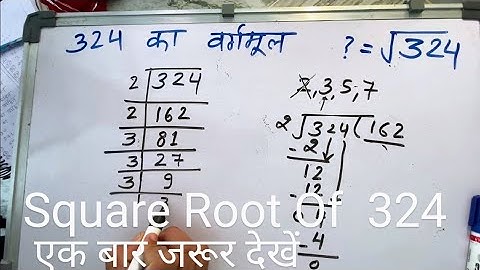 324 का वर्गमूल ? = √324
2 | 324
2 | 162
3 | 81
3 | 27
3 | 9
3
2, 3, 5, 7
2 √324 ( 162
- 2
12
- 12
- 4
0
Square Root Of 324
एक बार जरूर देखें